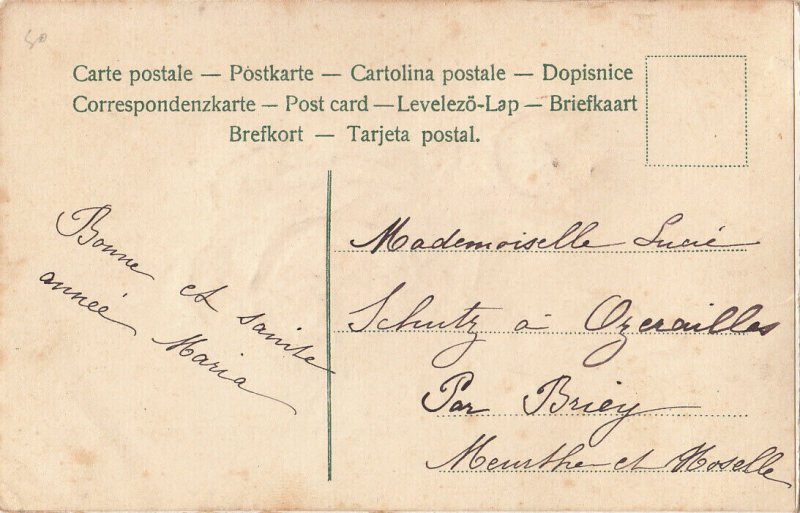 50
Carte postale — Postkarte — Cartolina postale — Dopisnice
Correspondenzkarte — Post card — Levelezö-Lap — Briefkaart
Brefkort — Tarjeta postal.
Bonne et sainte
année Maria
Mademoiselle Lucie
Schutz à Ozerailles
Par Briey
Meurthe et Moselle